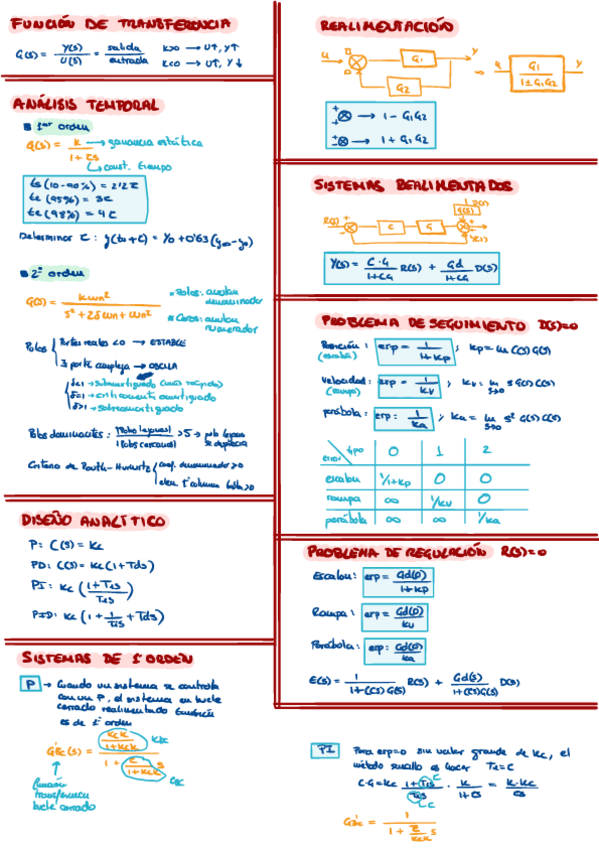 FUNCIÓN DE TRANSFERENCIA
G(s) = Y(s)/U(s) = salida/entrada
K>0 → U↑, Y↑
K<0 → U↑, Y↓
ANÁLISIS TEMPORAL
1er orden
G(s) = K/(1+τs) → ganancia estática
→ const. tiempo
ts (10-90%) = 2'2τ
te (95%) = 3τ
te (98%) = 4τ
Determinar τ: y(to+τ) = yo + 0'63(y∞-yo)
2º orden
G(s) = Kωn²/(s²+2δωn+ωn²)
*Polos: anulan denominador
*Ceros: anulan numerador
Polos
Partes reales <0 → ESTABLE
∃ parte compleja → OSCILA
δ<1 → subamortiguado
δ=1 → críticamente amortiguado
δ>1 → sobreamortiguado
Polos dominantes: |Polos lejanos|/|Polos cercanos| >5 → polo lejano se desprecia
Criterio de Routh-Hurwitz
coef. denominador >0
elem. 1ª columna tabla >0
DISEÑO ANALÍTICO
P: C(s) = Kc
PD: C(s) = Kc(1+Tds)
PI: Kc((1+Tis)/Tis)
PID: Kc(1+1/Tis+Tds)
SISTEMAS DE 1º ORDEN
P → Cuando un sistema se controla
con un P, el sistema en bucle
cerrado realimentado también
es de 1º orden
Gbc(s) = (KcK/(1+KcK))/(1+(τ/(1+KcK))s)
Kbc
τbc
Función
transferencia
bucle cerrado
REALIMENTACIÓN
U G1 Y G2 → U G1/(1±G1G2) Y
+ + ⊗ → 1-G1G2
+ - ⊗ → 1+G1G2
SISTEMAS REALIMENTADOS
R(s) C G D(s) Gd(s) Y(s)
Y(s) = C·G/(1+CG) R(s) + Gd/(1+CG) D(s)
PROBLEMA DE SEGUIMIENTO D(s)=0
Posición: (escalón) erp = 1/(1+Kp) ; Kp = lim C(s)G(s)
Velocidad: (rampa) erp = 1/Kv ; Kv = lim s→0 s G(s)C(s)
parábola: erp: 1/Ka ; Ka = lim s→0 s² G(s)C(s)
error tipo 0 1 2
escalon 1/1+Kp 0 0
rampa ∞ 1/Kv 0
parábola ∞ ∞ 1/Ka
PROBLEMA DE REGULACIÓN R(s)=0
Escalon: erp = Gd(0)/(1+Kp)
Rampa: erp = Gd(0)/Kv
Parábola: erp = Gd(0)/Ka
E(s) = 1/(1+C(s)G(s)) R(s) + Gd(s)/(1+C(s)G(s)) D(s)
PI Para erp=0 sin valor grande de Kc, el
método sencillo es hacer Ti=τ
C·G = Kc (1+Tis)/(Tis) · K/(1+τs) = K·Kc/(τs)
Gbc = 1/(1+(τ/KcK)s)